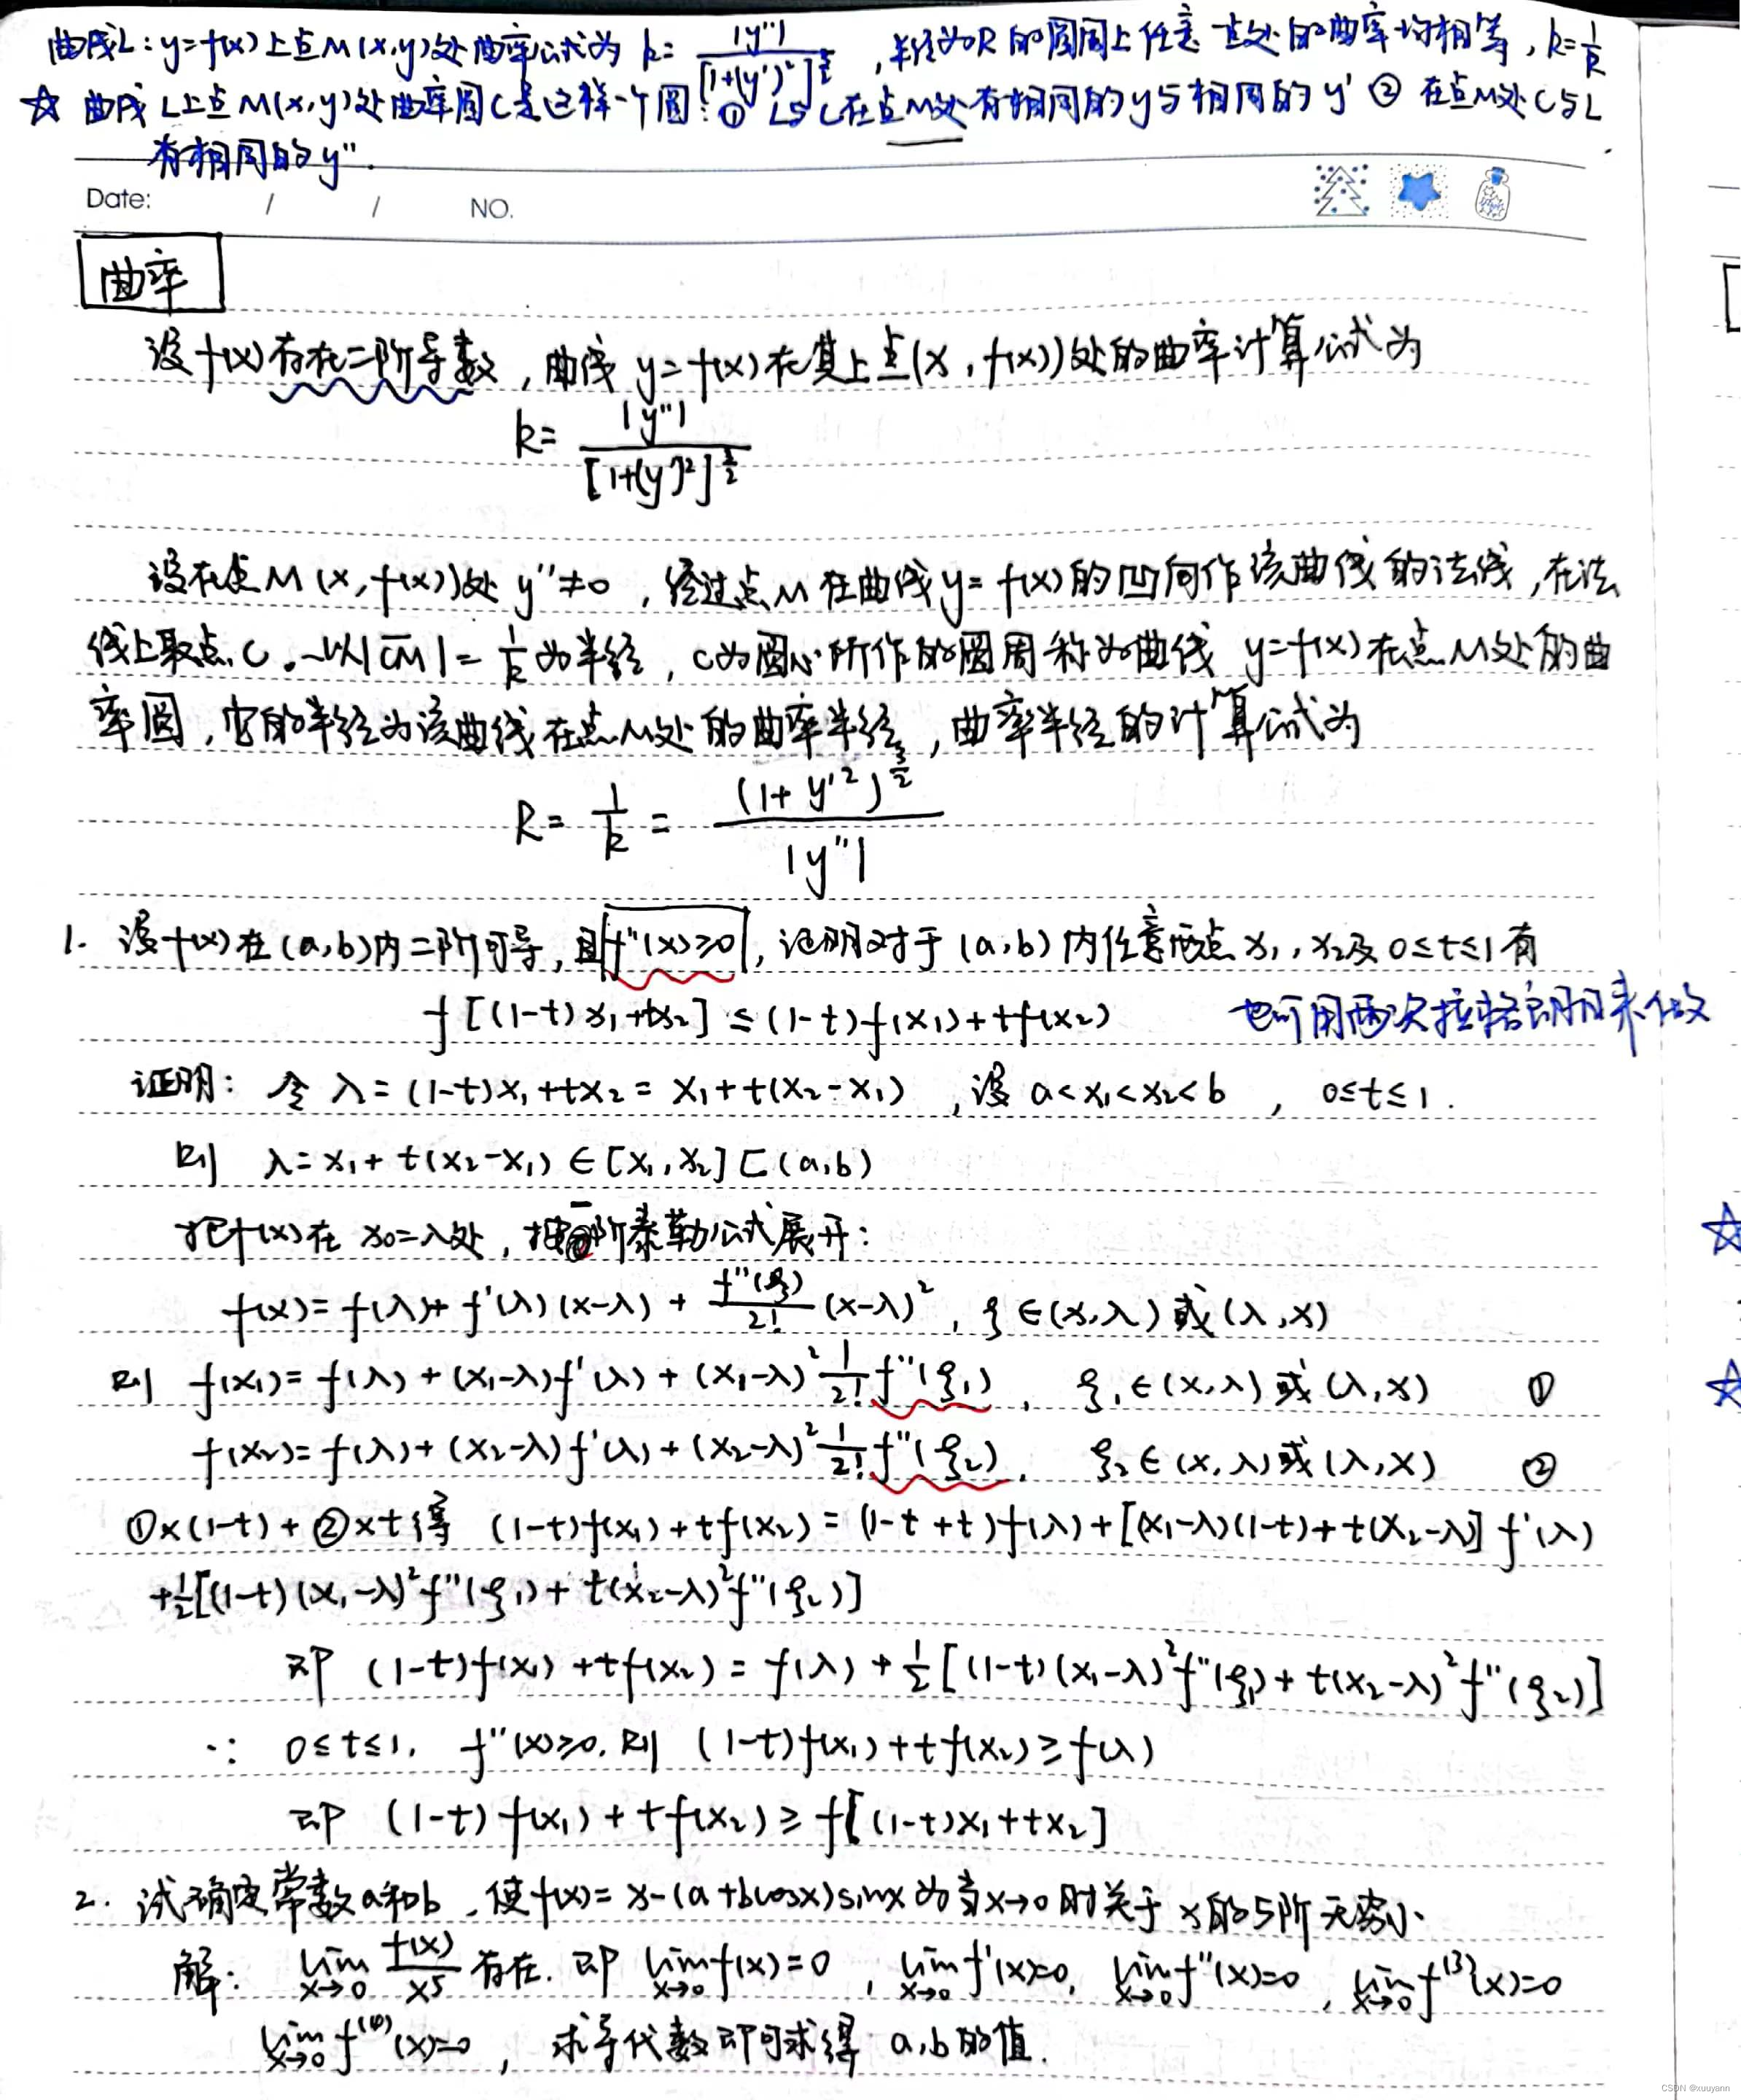 曲线L：y=f(x)上点M(x,y)处曲率公式为 k= |y''| / [1+(y')²]^(3/2) ，半径为R的圆周上任意一点处的曲率均相等，k=1/R
☆ 曲线L上点M(x,y)处曲率圆C是这样一个圆：① L与C在点M处有相同的y与相同的y' ② 在点M处C与L
有相同的y''.
Date: / / NO.
曲率
设f(x)存在二阶导数，曲线 y=f(x)在其上点(x,f(x))处的曲率计算公式为
k= |y''| / [1+(y')²]^(3/2)
设在点M(x,f(x))处 y''≠0，经过点M在曲线y=f(x)的凹向作该曲线的法线，在法
线上取点C，以|CM|=1/k为半径，C为圆心所作的圆周称为曲线 y=f(x)在点M处的曲
率圆，它的半径为该曲线在点M处的曲率半径，曲率半径的计算公式为
R= 1/k = (1+y'²)^(3/2) / |y''|
1. 设f(x)在(a,b)内二阶可导，且f''(x)≥0，证明对于(a,b)内任意两点x₁,x₂及0≤t≤1有
f[(1-t)x₁+tx₂]≤(1-t)f(x₁)+tf(x₂) 也可用两次拉格朗日来做
证明：令 λ=(1-t)x₁+tx₂=x₁+t(x₂-x₁)，设 a<x₁<x₂<b，0≤t≤1.
则 λ=x₁+t(x₂-x₁)∈[x₁,x₂]⊂(a,b)
把f(x)在x₀=λ处，按一阶泰勒公式展开：
f(x)=f(λ)+f'(λ)(x-λ)+ f''(ξ)/2! (x-λ)²，ξ∈(x,λ)或(λ,x)
则 f(x₁)=f(λ)+(x₁-λ)f'(λ)+(x₁-λ)² 1/2! f''(ξ₁)， ξ₁∈(x,λ)或(λ,x) ①
f(x₂)=f(λ)+(x₂-λ)f'(λ)+(x₂-λ)² 1/2! f''(ξ₂)， ξ₂∈(x,λ)或(λ,x) ②
①×(1-t)+②×t得 (1-t)f(x₁)+tf(x₂)=(1-t+t)f(λ)+[(x₁-λ)(1-t)+t(x₂-λ)]f'(λ)
+1/2[(1-t)(x₁-λ)²f''(ξ₁)+t(x₂-λ)²f''(ξ₂)]
即 (1-t)f(x₁)+tf(x₂)=f(λ)+1/2[(1-t)(x₁-λ)²f''(ξ₁)+t(x₂-λ)²f''(ξ₂)]
∵ 0≤t≤1，f''(x)≥0，则 (1-t)f(x₁)+tf(x₂)≥f(λ)
即 (1-t)f(x₁)+tf(x₂)≥f[(1-t)x₁+tx₂]
2. 试确定常数a和b，使f(x)=x-(a+bcosx)sinx为当x→0时关于x的5阶无穷小.
解：lim x→0 f(x)/x⁵ 存在. 即 lim x→0 f(x)=0，lim x→0 f'(x)=0，lim x→0 f''(x)=0，lim x→0 f⁽³⁾(x)=0
lim x→0 f⁽⁴⁾(x)=0，求导代数即可求得 a,b的值.
CSDN @xuuyann